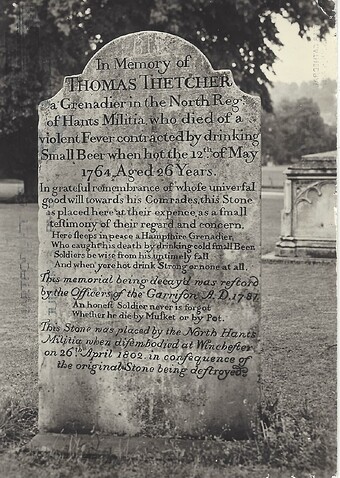 In Memory of
THOMAS THETCHER
a Grenadier in the North Regt.
of Hants Militia, who died of a
violent Fever contracted by drinking
Small Beer when hot the 12th. of May
1764, Aged 26 Years.
In grateful remembrance of whoſe univerſal
good will towards his Comrades, this Stone
is placed here at their expence, as a ſmall
teſtimony of their regard and concern.
Here ſleeps in peace a Hampſhire Grenadier,
Who caught his death by drinking cold ſmall Beer
Soldiers be wiſe from his untimely fall
And when ye're hot drink Strong or none at all.
This memorial being decay'd was reſtor'd
by the Officers of the Garriſon A.D. 1781.
An honeſt Soldier never is forgot
Whether he die by Muſket or by Pot.
This Stone was placed by the North Hants
Militia when diſembodied at Wincheſter
on 26th April 1802, in conſequence of
the original Stone being deſtroyed.